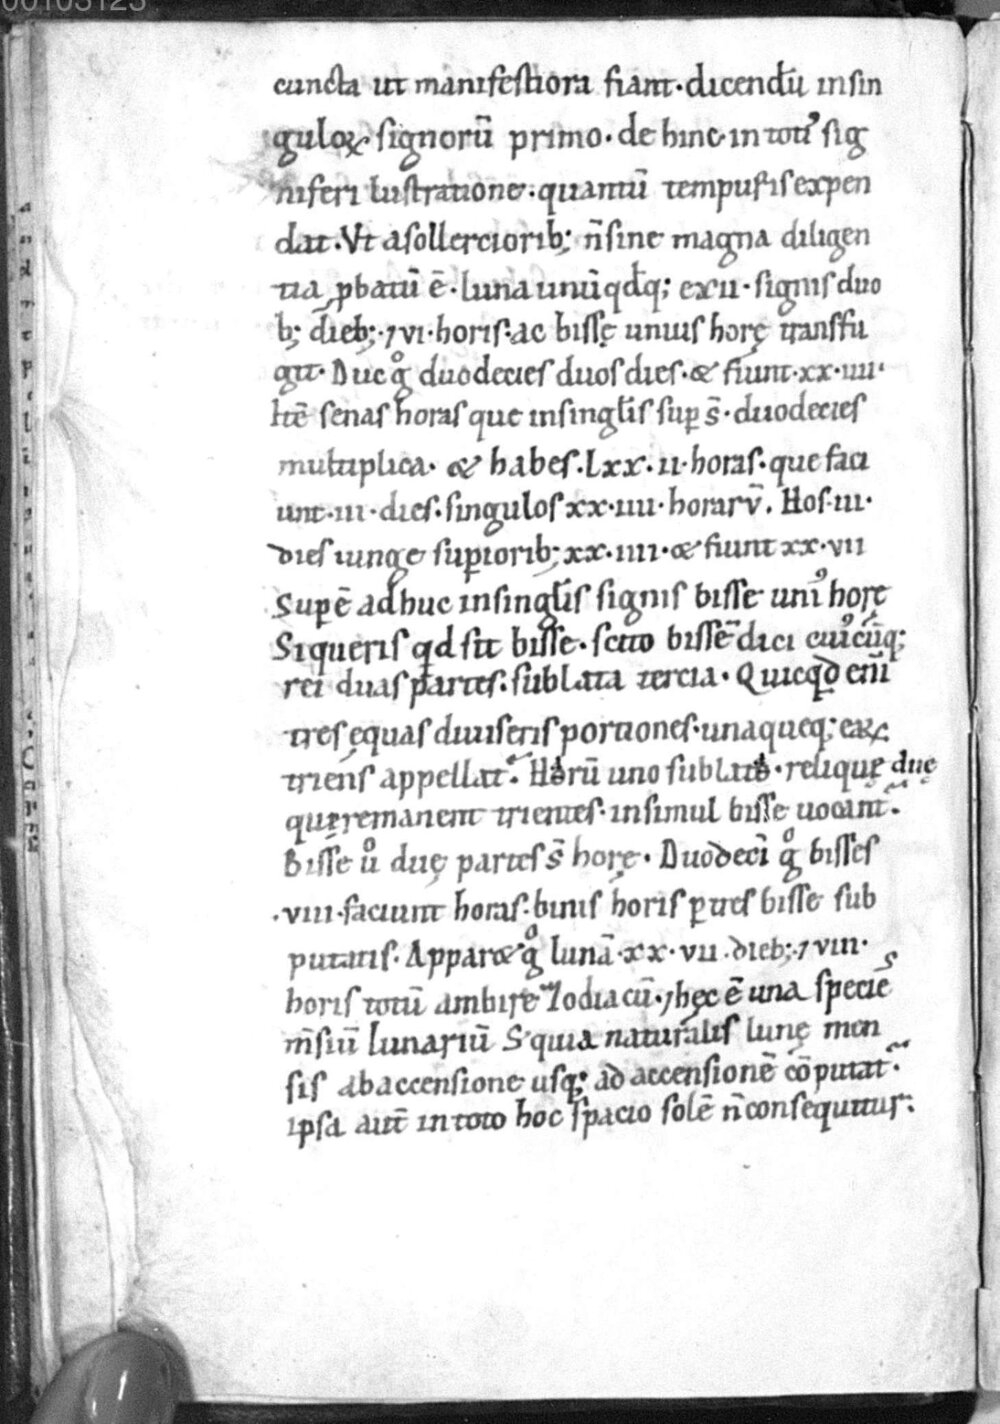 00103123
cuncta ut manifestiora fiant · dicendū in sin
guloꝝ signorū primo · de hinc · in totiꝰ sig
niferi lustratione · quantū tempusis expen
dat · Vt a sollercioribꝫ n̄ sine magna diligen
tia ꝓbatū ē · luna unūqdq; ex xii · signis duo
bꝫ diebꝫ · ⁊ vi · horis · ac bisse unius horę transfu
git · Duc gͦ duodecies duos dies · & fiunt · xx · iiii ·
Itē senas horas que in singulis suꝑ s̄ · duodecies
multiplica · & habes · lxx · ii · horas · que faci
unt · iii · dies · singulos xx · iiii · horarv̄ . Hos · iii ·
dies iunge suꝑioribꝫ xx · iiii · & fiunt xx · vii
Supē ad huc in singulis signis bisse uniꝰ horę
Si queris qd sit bisse · scito bissē dici cuiꝰcūq;
rei duas partes · sublata tercia · Quicqd enī
tres ęquas diuiseris portiones · unaqueq; eaꝝ
triens appellat᷑ . Horū uno sublato · relique duę
quę remanent trientes · in simul bisse uocant᷑ .
Bisse uͦ duę partes s̄ horę · Duodecī gͦ bisses
· viii · faciunt horas · binis horis ꝑ tres bisse sub
putatis · Apparet gͦ lunā · xx · vii · diebꝫ · ⁊ viii ·
horis totū ambire zodiacū · ⁊ hęc ē una speciēs
m̄siū lunariū S; quia naturalis lunę men
sis ab accensione usq; ad accensionē cōputat᷑ ·
ipsa aut̄ in toto hoc spacio solē n̄ consequitur ;